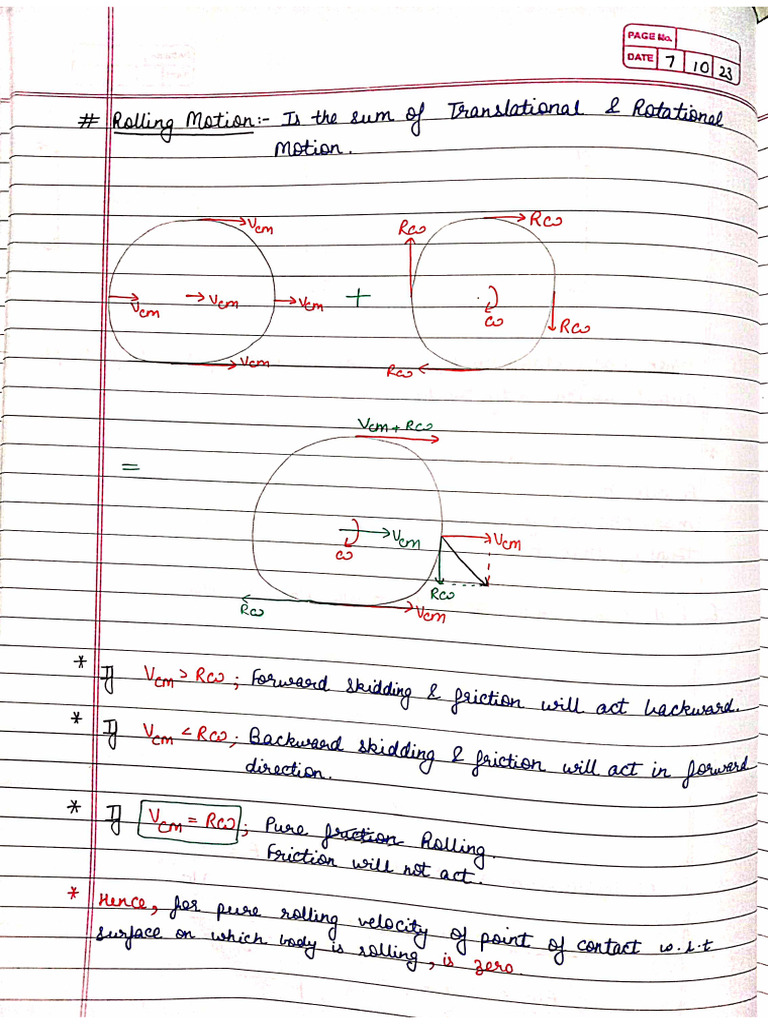 PAGE No.
DATE 7 10 23
# Rolling Motion:- Is the sum of Translational & Rotational
Motion.
Vcm
Vcm
Vcm
Vcm
Vcm
+
Rω
Rω
ω
Rω
Rω
=
Vcm + Rω
Vcm
ω
Vcm
Rω
Rω
Vcm
* If Vcm > Rω; Forward skidding & friction will act backward.
* If Vcm < Rω; Backward skidding & friction will act in forward
direction.
* If Vcm = Rω; Pure friction Rolling.
Friction will not act.
* Hence, for pure rolling velocity of point of contact w.r.t
surface on which body is rolling, is zero.